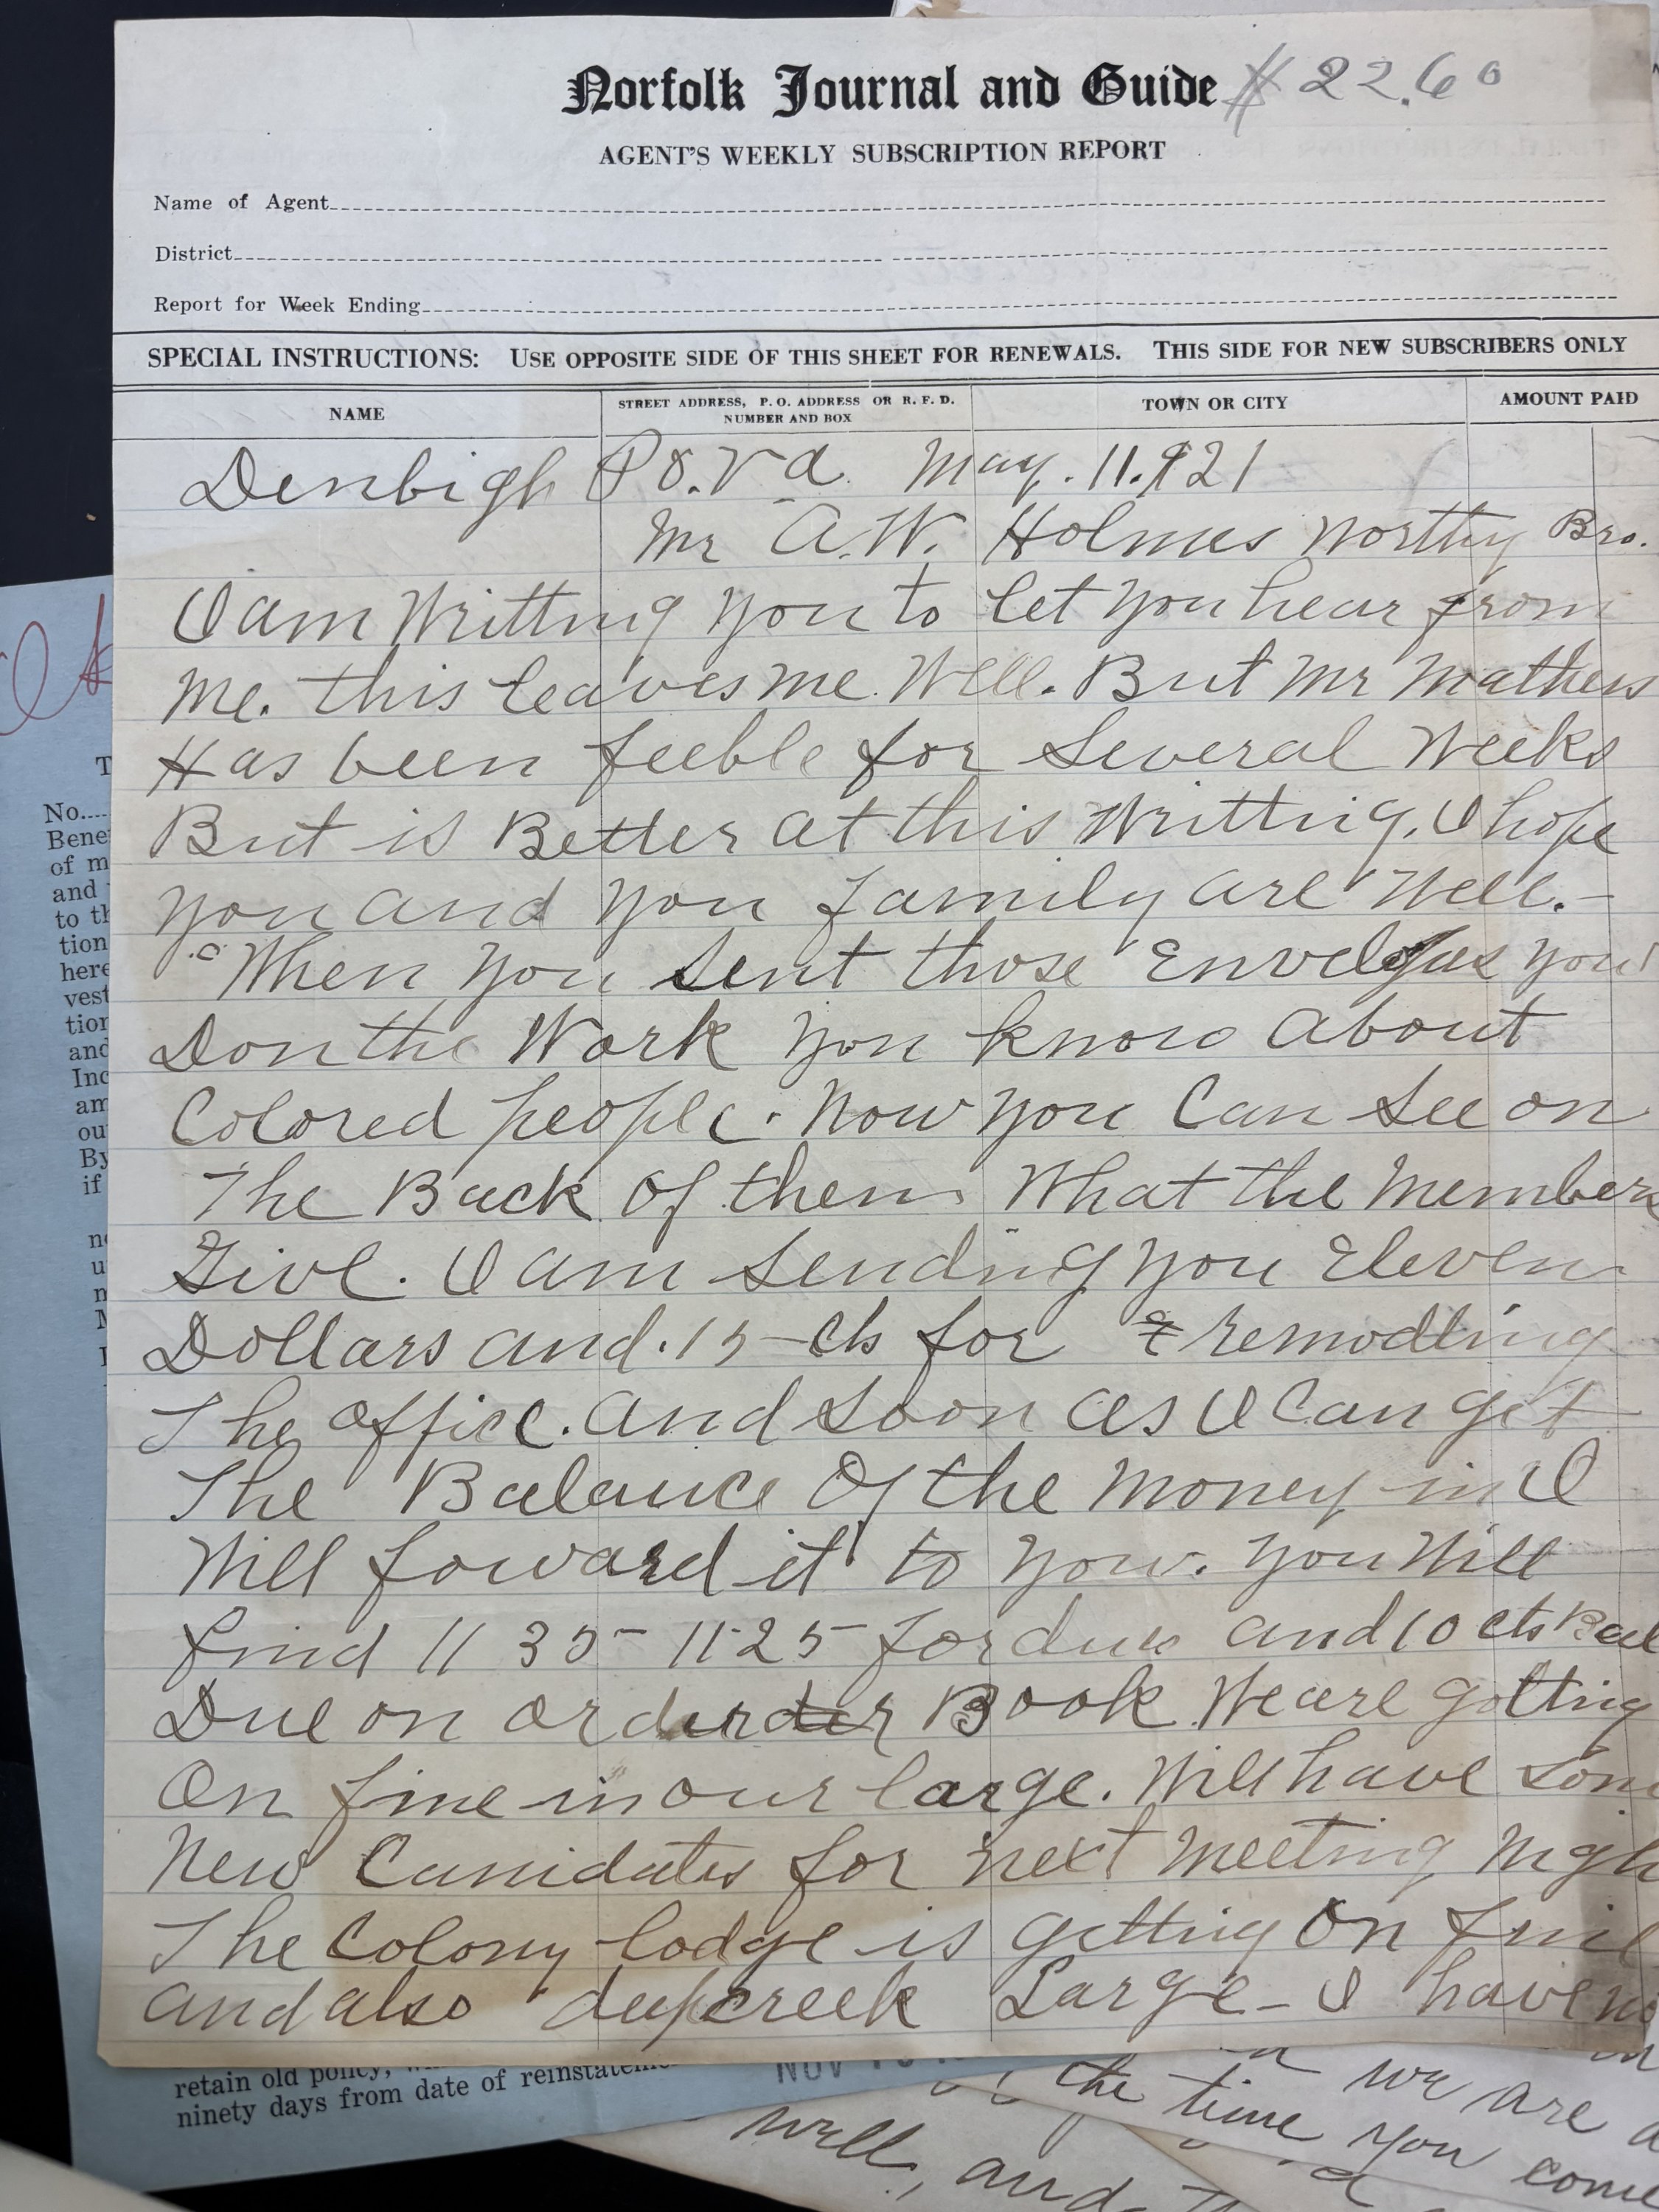 Norfolk Journal and Guide $22.60
AGENT'S WEEKLY SUBSCRIPTION REPORT
Name of Agent
District
Report for Week Ending
SPECIAL INSTRUCTIONS: USE OPPOSITE SIDE OF THIS SHEET FOR RENEWALS. THIS SIDE FOR NEW SUBSCRIBERS ONLY
NAME
STREET ADDRESS, P. O. ADDRESS OR R. F. D. NUMBER AND BOX
TOWN OR CITY
AMOUNT PAID
Denbigh P O. Va. May. 11. 921
Mr A. W. Holmes Worthy Bro.
I am Writting you to let you hear from
me. this leaves me. Well. But Mr Mathews
Has been feeble for Several Weeks
But is Better at this Writting. I hope
you and you family are Well. -
When you Sent those Envelopes you
Don the Work you know About
Colored people. Now you Can See on
The Back of them What the Members
Give. I am Sending you Eleven
Dollars and. 15 - cts for remodling
The office. and Soon as I Can get
The Balance Of the money in I
Will foward it to you. you Will
find 11 35 - 11-25 for dues and 10 cts Bal
Due on Book We are gotting
On fine in our large. Will have
New Canidates for next meeting
The Colony lodge is getting On fine
and also deepcreek Large - I have
No....
Bene
of m
and
to th
tion
here
vest
tion
and
Inc
am
ou
By
if
retain old policy,
ninety days from date of reinstateme
NOV
we are
the time you come
well, and